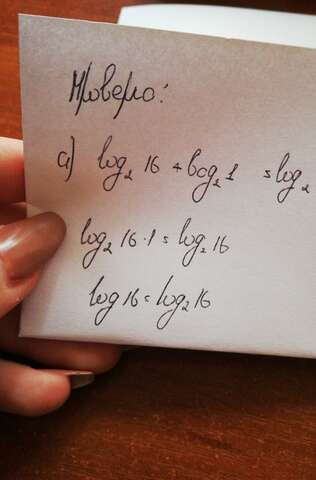 Проверю:
а) log₂ 16 + log₂ 1 = log₂
log₂ 16 · 1 = log₂ 16
log 16 = log₂ 16